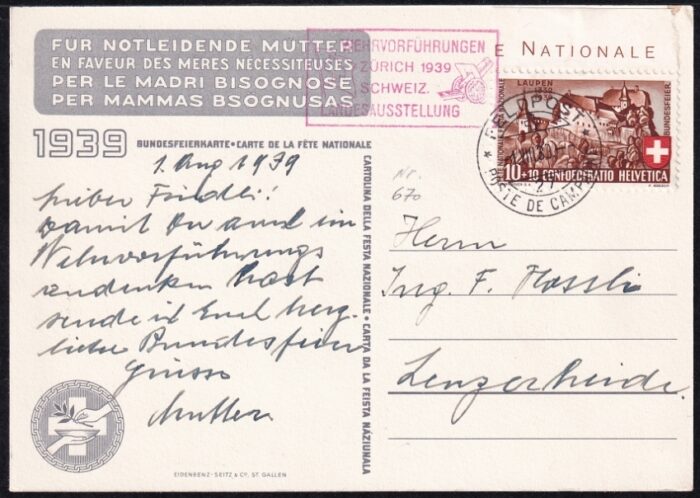 FÜR NOTLEIDENDE MÜTTER
EN FAVEUR DES MÈRES NÉCESSITEUSES
PER LE MADRI BISOGNOSE
PER MAMMAS BSOGNUSAS
EHRVORFÜHRUNGEN
ZÜRICH 1939
SCHWEIZ.
LANDESAUSSTELLUNG
E NATIONALE
LAUPEN
BUNDESFEIER
10+10 CONFOEDERATIO HELVETICA
FELDPOST
POSTE DE CAMPAGNE
27
1939
BUNDESFEIERKARTE • CARTE DE LA FÊTE NATIONALE
CARTOLINA DELLA FESTA NAZIONALE • CARTA DA LA FEISTA NAZIUNALA
1. Aug 1939
Lieber Friedli!
Damit Du auch ein
Wehrvorführungs
andenken hast
sende ich Euch herz-
liche Bundesfeier
Grüsse
Mutter
Nr.
670
Herrn
Ing. F. Hössli
Lenzerheide
EIDENBENZ-SEITZ & Co. ST. GALLEN